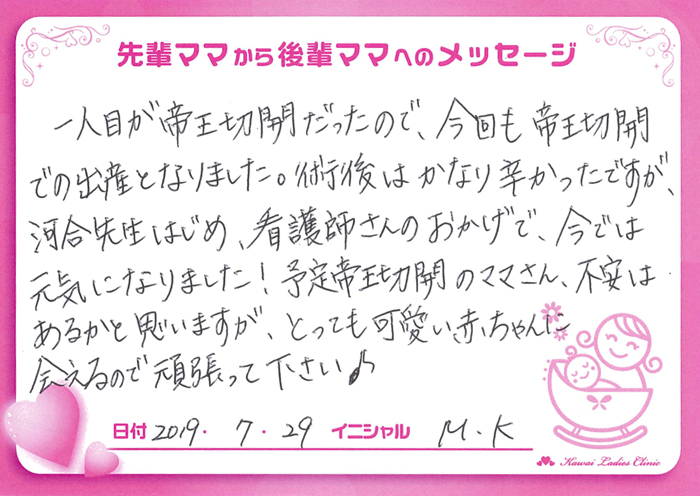 先輩ママから後輩ママへのメッセージ
一人目が帝王切開だったので、今回も帝王切開
での出産となりました。術後はかなり辛かったですが、
河合先生はじめ、看護師さんのおかげで、今では
元気になりました！予定帝王切開のママさん、不安は
あるかと思いますが、とっても可愛い赤ちゃんに
会えるので頑張って下さい♪
日付 2019・7・29 イニシャル M.K
Kawai Ladies Clinic